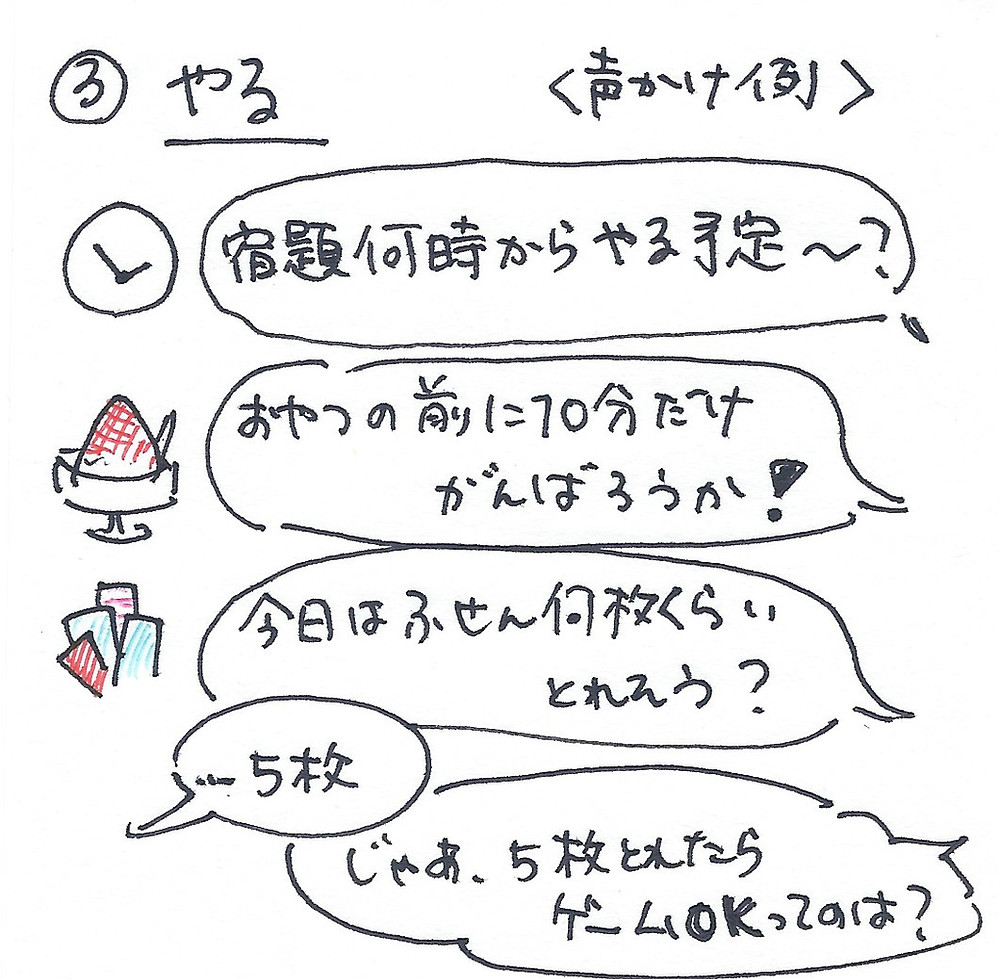 ③ やる
<声かけ例>
宿題何時からやる予定~?
おやつの前に10分だけ
がんばろうか!
今日はふせん何枚くらい
とれそう?
…5枚
じゃあ、5枚とれたら
ゲームOKってのは?